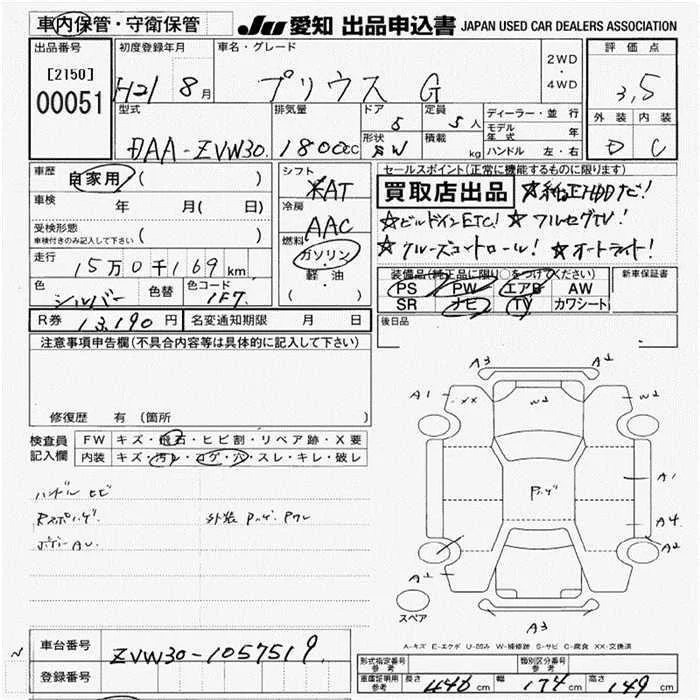 車内保管・守衛保管
JU 愛知 出品申込書 JAPAN USED CAR DEALERS ASSOCIATION
出品番号
[2150]
00051
初度登録年月
H21 8月
車名・グレード
プリウス G
2WD
・
4WD
評価点
3,5
外装 内装
D C
型式
DAA-ZVW30
排気量
1800cc
ドア
5
定員
5人
形状
SW
積載
kg
ディーラー・並行
モデル年式 年
ハンドル 左・右
車歴
自家用 ( )
車検 年 月( 日)
受検形態
車検付きのみ記入して下さい ( )
走行
15万0千169km
色
シルバー
色替
色コード
1F7
シフト
AT
冷房
AAC
燃料
ガソリン
軽・油
( )
セールスポイント(正常に機能するものに限ります)
買取店出品 ☆純正HDDナビ!
☆ビルドインETC! ☆フルセグTV!
☆クルーズコントロール! ☆オートライト!
装備品(純正品に限り○をつけてください)
PS PW エアB AW
SR ナビ TV カワシート
新車保証書
後日品
R券 13,190円 名変通知期限 月 日
注意事項申告欄(不具合内容等は具体的に記入して下さい)
修復歴 有 (箇所 )
検査員
記入欄
FW キズ・飛石・ヒビ割・リペア跡・X要
内装 キズ・汚レ・コゲ・穴・スレ・キレ・破レ
ハンドル ヒビ
外装
A3
A1
XX
W2
W2
A1
A4
A2
A3
スペア
A-キズ E-エクボ U-凹み W-補修跡 S-サビ C-腐食 XX-交換済
車台番号
ZVW30-1057519
登録番号
形式指定番号
参考
類別区分番号
参考
車庫証明用
参考
長さ 446cm 幅 174cm 高さ 149cm